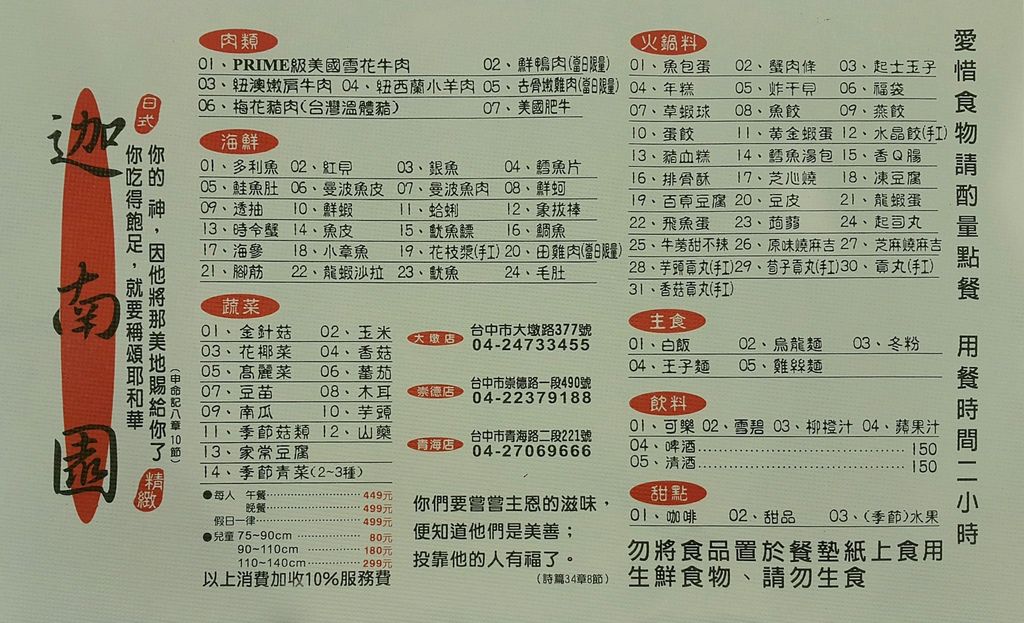 迦南園
日式
精緻
你的 神，因他將那美地賜給你了
(申命記八章10節)
你吃得飽足，就要稱頌耶和華
肉類
01、PRIME級美國雪花牛肉 02、鮮鴨肉(當日限量)
03、紐澳嫩肩牛肉 04、紐西蘭小羊肉 05、去骨嫩雞肉(當日限量)
06、梅花豬肉(台灣溫體豬) 07、美國肥牛
海鮮
01、多利魚 02、紅貝 03、銀魚 04、鱈魚片
05、鮭魚肚 06、曼波魚皮 07、曼波魚肉 08、鮮蚵
09、透抽 10、鮮蝦 11、蛤蜊 12、象拔棒
13、時令蟹 14、魚皮 15、魷魚鰾 16、鯛魚
17、海參 18、小章魚 19、花枝漿(手工) 20、田雞肉(當日限量)
21、腳筋 22、龍蝦沙拉 23、魷魚 24、毛肚
蔬菜
01、金針菇 02、玉米
03、花椰菜 04、香菇
05、高麗菜 06、蕃茄
07、豆苗 08、木耳
09、南瓜 10、芋頭
11、季節菇類 12、山藥
13、家常豆腐
14、季節青菜(2~3種)
●每人 午餐 449元
晚餐 499元
假日一律 499元
●兒童 75~90cm 80元
90~110cm 180元
110~140cm 299元
以上消費加收10%服務費
大墩店 台中市大墩路377號
04-24733455
崇德店 台中市崇德路一段490號
04-22379188
青海店 台中市青海路二段221號
04-27069666
你們要嘗嘗主恩的滋味，
便知道他們是美善；
投靠他的人有福了。
(詩篇34章8節)
火鍋料
01、魚包蛋 02、蟹肉條 03、起士玉子
04、年糕 05、炸干貝 06、福袋
07、草蝦球 08、魚餃 09、燕餃
10、蛋餃 11、黃金蝦蛋 12、水晶餃(手工)
13、豬血糕 14、鱈魚湯包 15、香Q腸
16、排骨酥 17、芝心燒 18、凍豆腐
19、百頁豆腐 20、豆皮 21、龍蝦蛋
22、飛魚蛋 23、蒟蒻 24、起司丸
25、牛蒡甜不辣 26、原味燒麻吉 27、芝麻燒麻吉
28、芋頭貢丸(手工) 29、荀子貢丸(手工) 30、貢丸(手工)
31、香菇貢丸(手工)
主食
01、白飯 02、烏龍麵 03、冬粉
04、王子麵 05、雞絲麵
飲料
01、可樂 02、雪碧 03、柳橙汁 04、蘋果汁
04、啤酒 150
05、清酒 150
甜點
01、咖啡 02、甜品 03、(季節)水果
勿將食品置於餐墊紙上食用
生鮮食物、請勿生食
愛惜食物請酌量點餐 用餐時間二小時